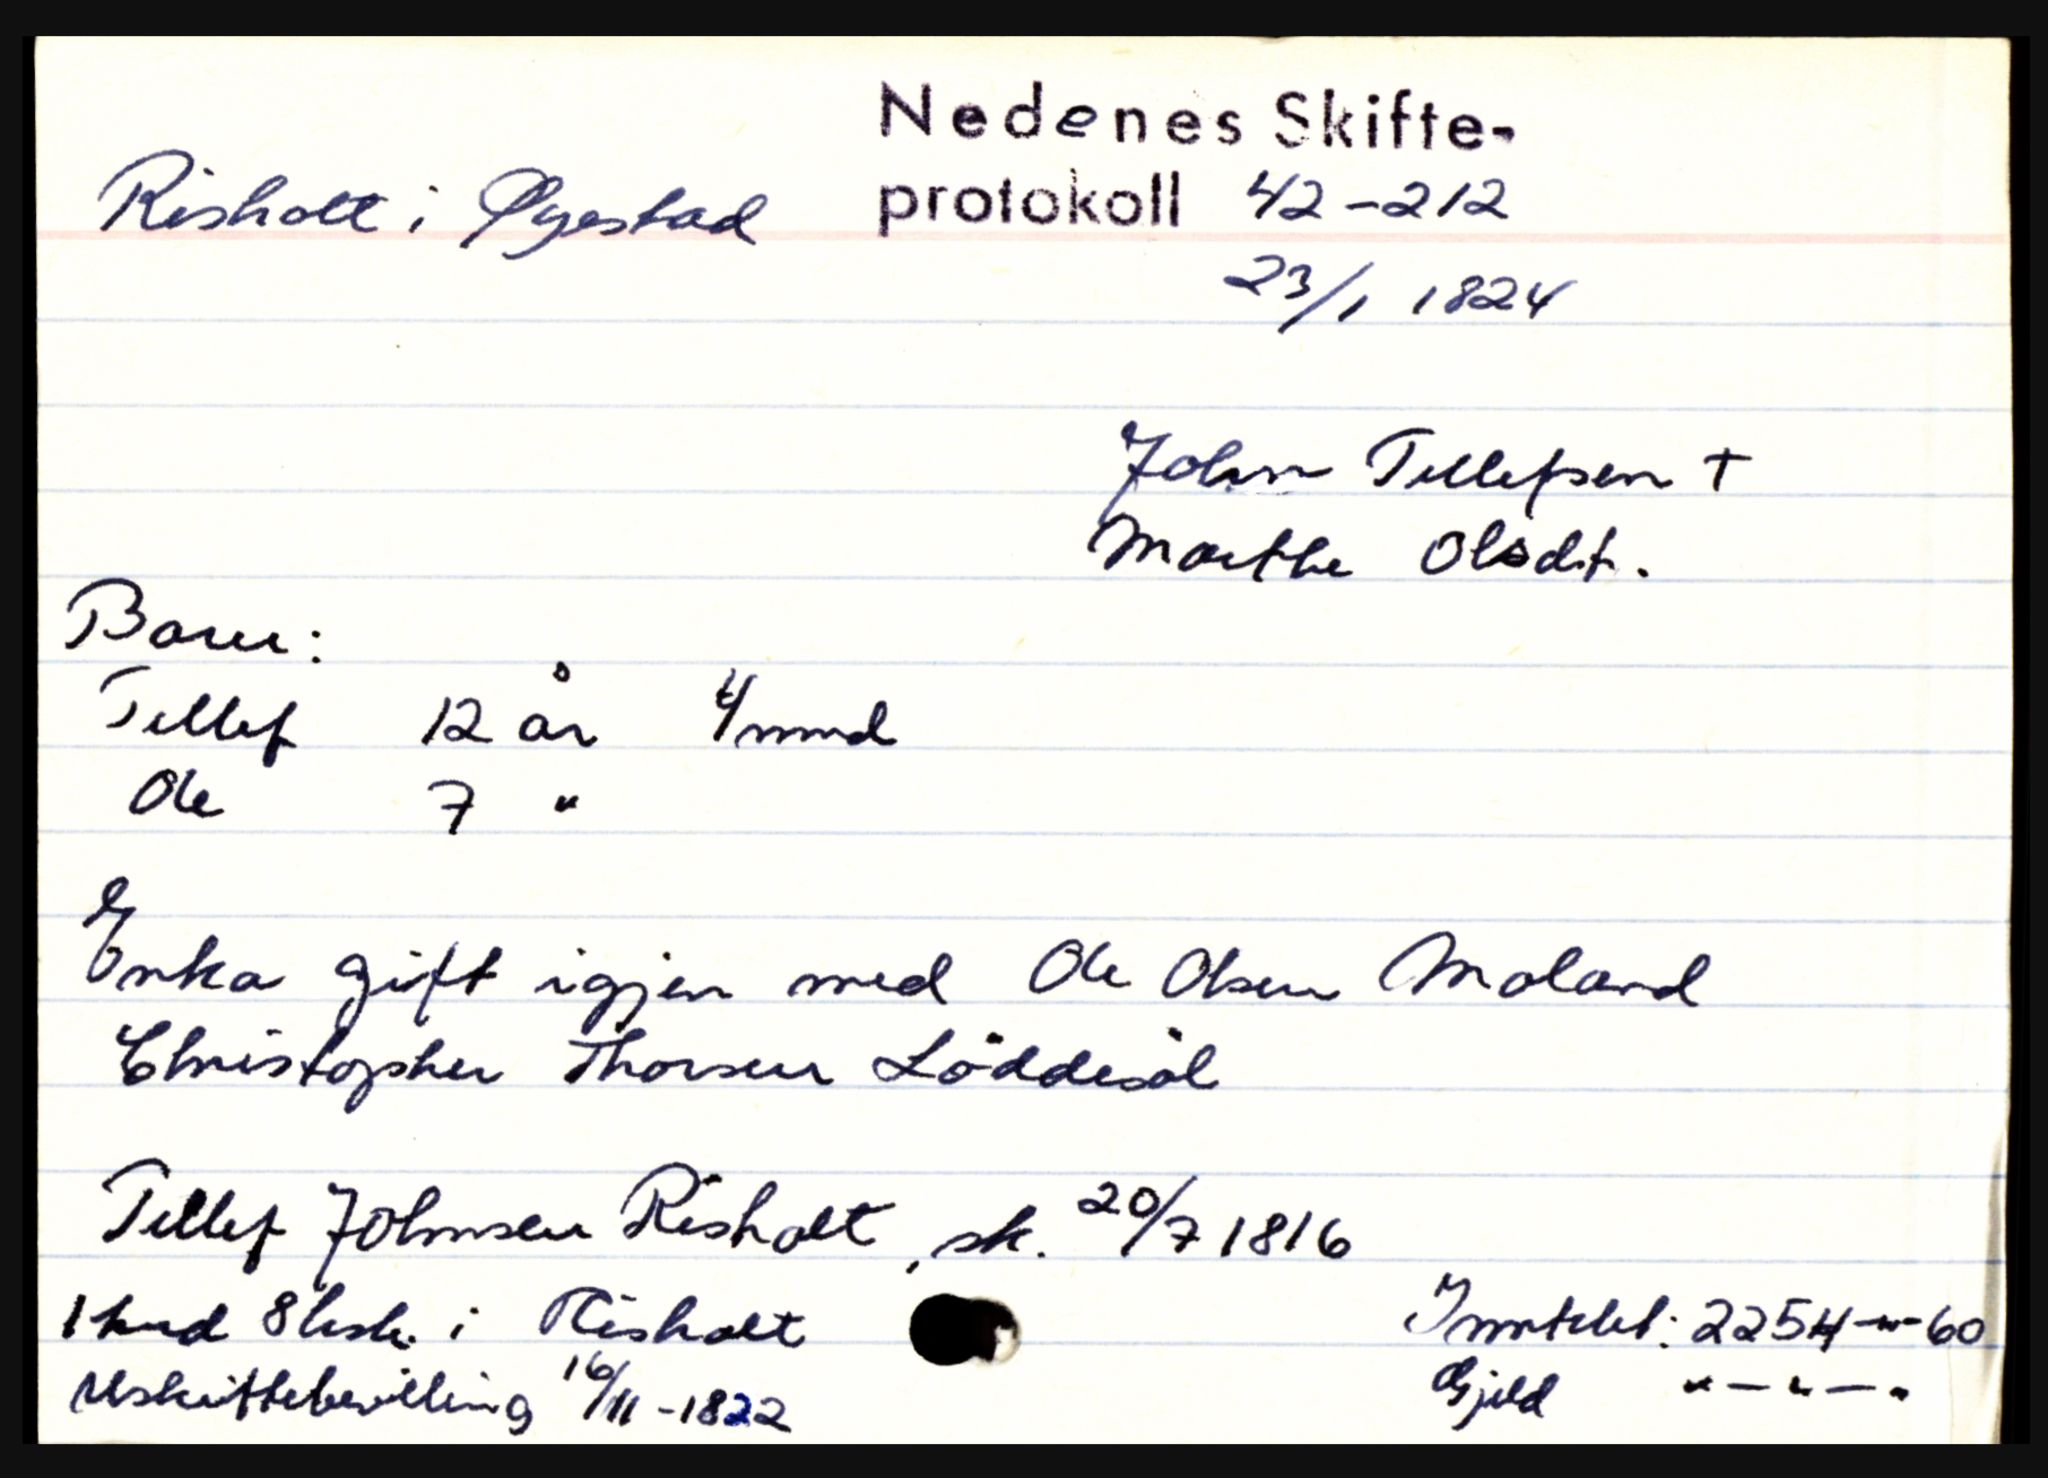 Nedenes Skifte-
Risholt i Øyestad protokoll 42-212
23/1 1824
John Tellefsen †
Marthe Olsdt.
Barn:
Tellef 12 år 4 mnd
Ole 7 "
Enka gift igjen med Ole Olsen Moland
Christopher Thorsen Löddesöl
Tellef Johnsen Risholt, sk. 20/7 1816
1 hud 8 ksk. i Risholt
Inntekt: 2254-"-60
Uskiftebevilling 16/11-1822
Gjeld "-"-"